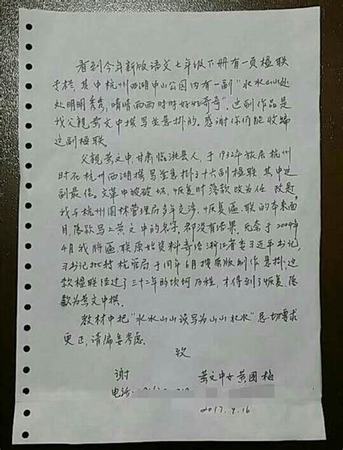 看到今年新版语文七年级下册有一页楹联
于栏,其中杭州西湖中山公园内有一副“水水山山处
处明明秀秀,晴晴雨雨时时好好奇奇”。这副作品是
我父亲黄文中撰写并悬挂的。感谢你们能收编
这副楹联。
父亲黄文中,甘肃临洮县人,于1932年旅居杭州
时在杭州西湖撰写并悬挂三十六副楹联,其中这
副最佳。文革中被破坏,恢复时落款改为任政书,
我与杭州园林管理局多年交涉,恢复匾联的本来面
目落款写上黄文中的名字,都没有结果,无奈于2004年
4月我将匾联原始资料寄给浙江省委习近平书记,
习书记批转杭管局于同年6月按原版制作悬挂,这
款楹联经过了三十二年的坎坷历程,才得到了恢复落
款为黄文中撰。
教材中把“水水山山误写为山山水水”恳切要求
更正,请编委考虑。
致
谢
黄文中女黄国梅
电话:
2017.4.16